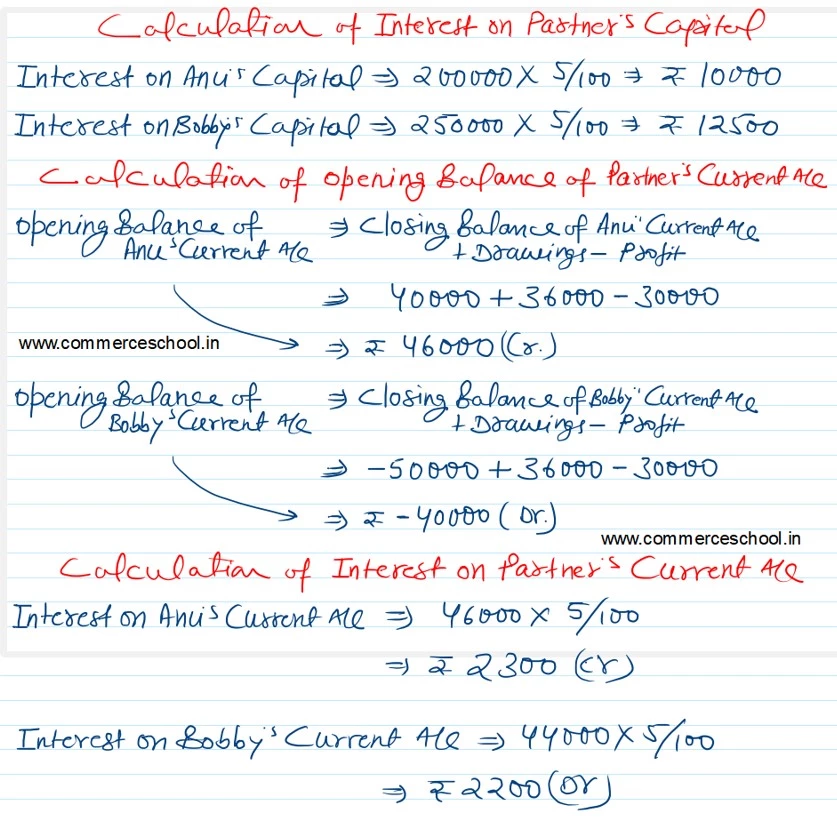 Calculation of Interest on Partner's Capital
Interest on Anu's Capital ⇒ 200000 X 5/100 ⇒ ₹ 10000
Interest on Bobby's Capital ⇒ 250000 X 5/100 ⇒ ₹ 12500
Calculation of Opening Balance of Partner's Current A/c
Opening Balance of ⇒ Closing Balance of Anu' Current A/c
Anu's Current A/c + Drawings - Profit
⇒ 40000 + 36000 - 30000
www.commerceschool.in ⇒ ₹ 46000 (Cr.)
Opening Balance of ⇒ Closing Balance of Bobby' Current A/c
Bobby's Current A/c + Drawings - Profit
⇒ -50000 + 36000 - 30000
⇒ ₹ -40000 (Dr.)
www.commerceschool.in
Calculation of Interest on Partner's Current A/c
Interest on Anu's Current A/c ⇒ 46000 X 5/100
⇒ ₹ 2300 (Cr)
Interest on Bobby's Current A/c ⇒ 44000 X 5/100
⇒ ₹ 2200 (Dr)